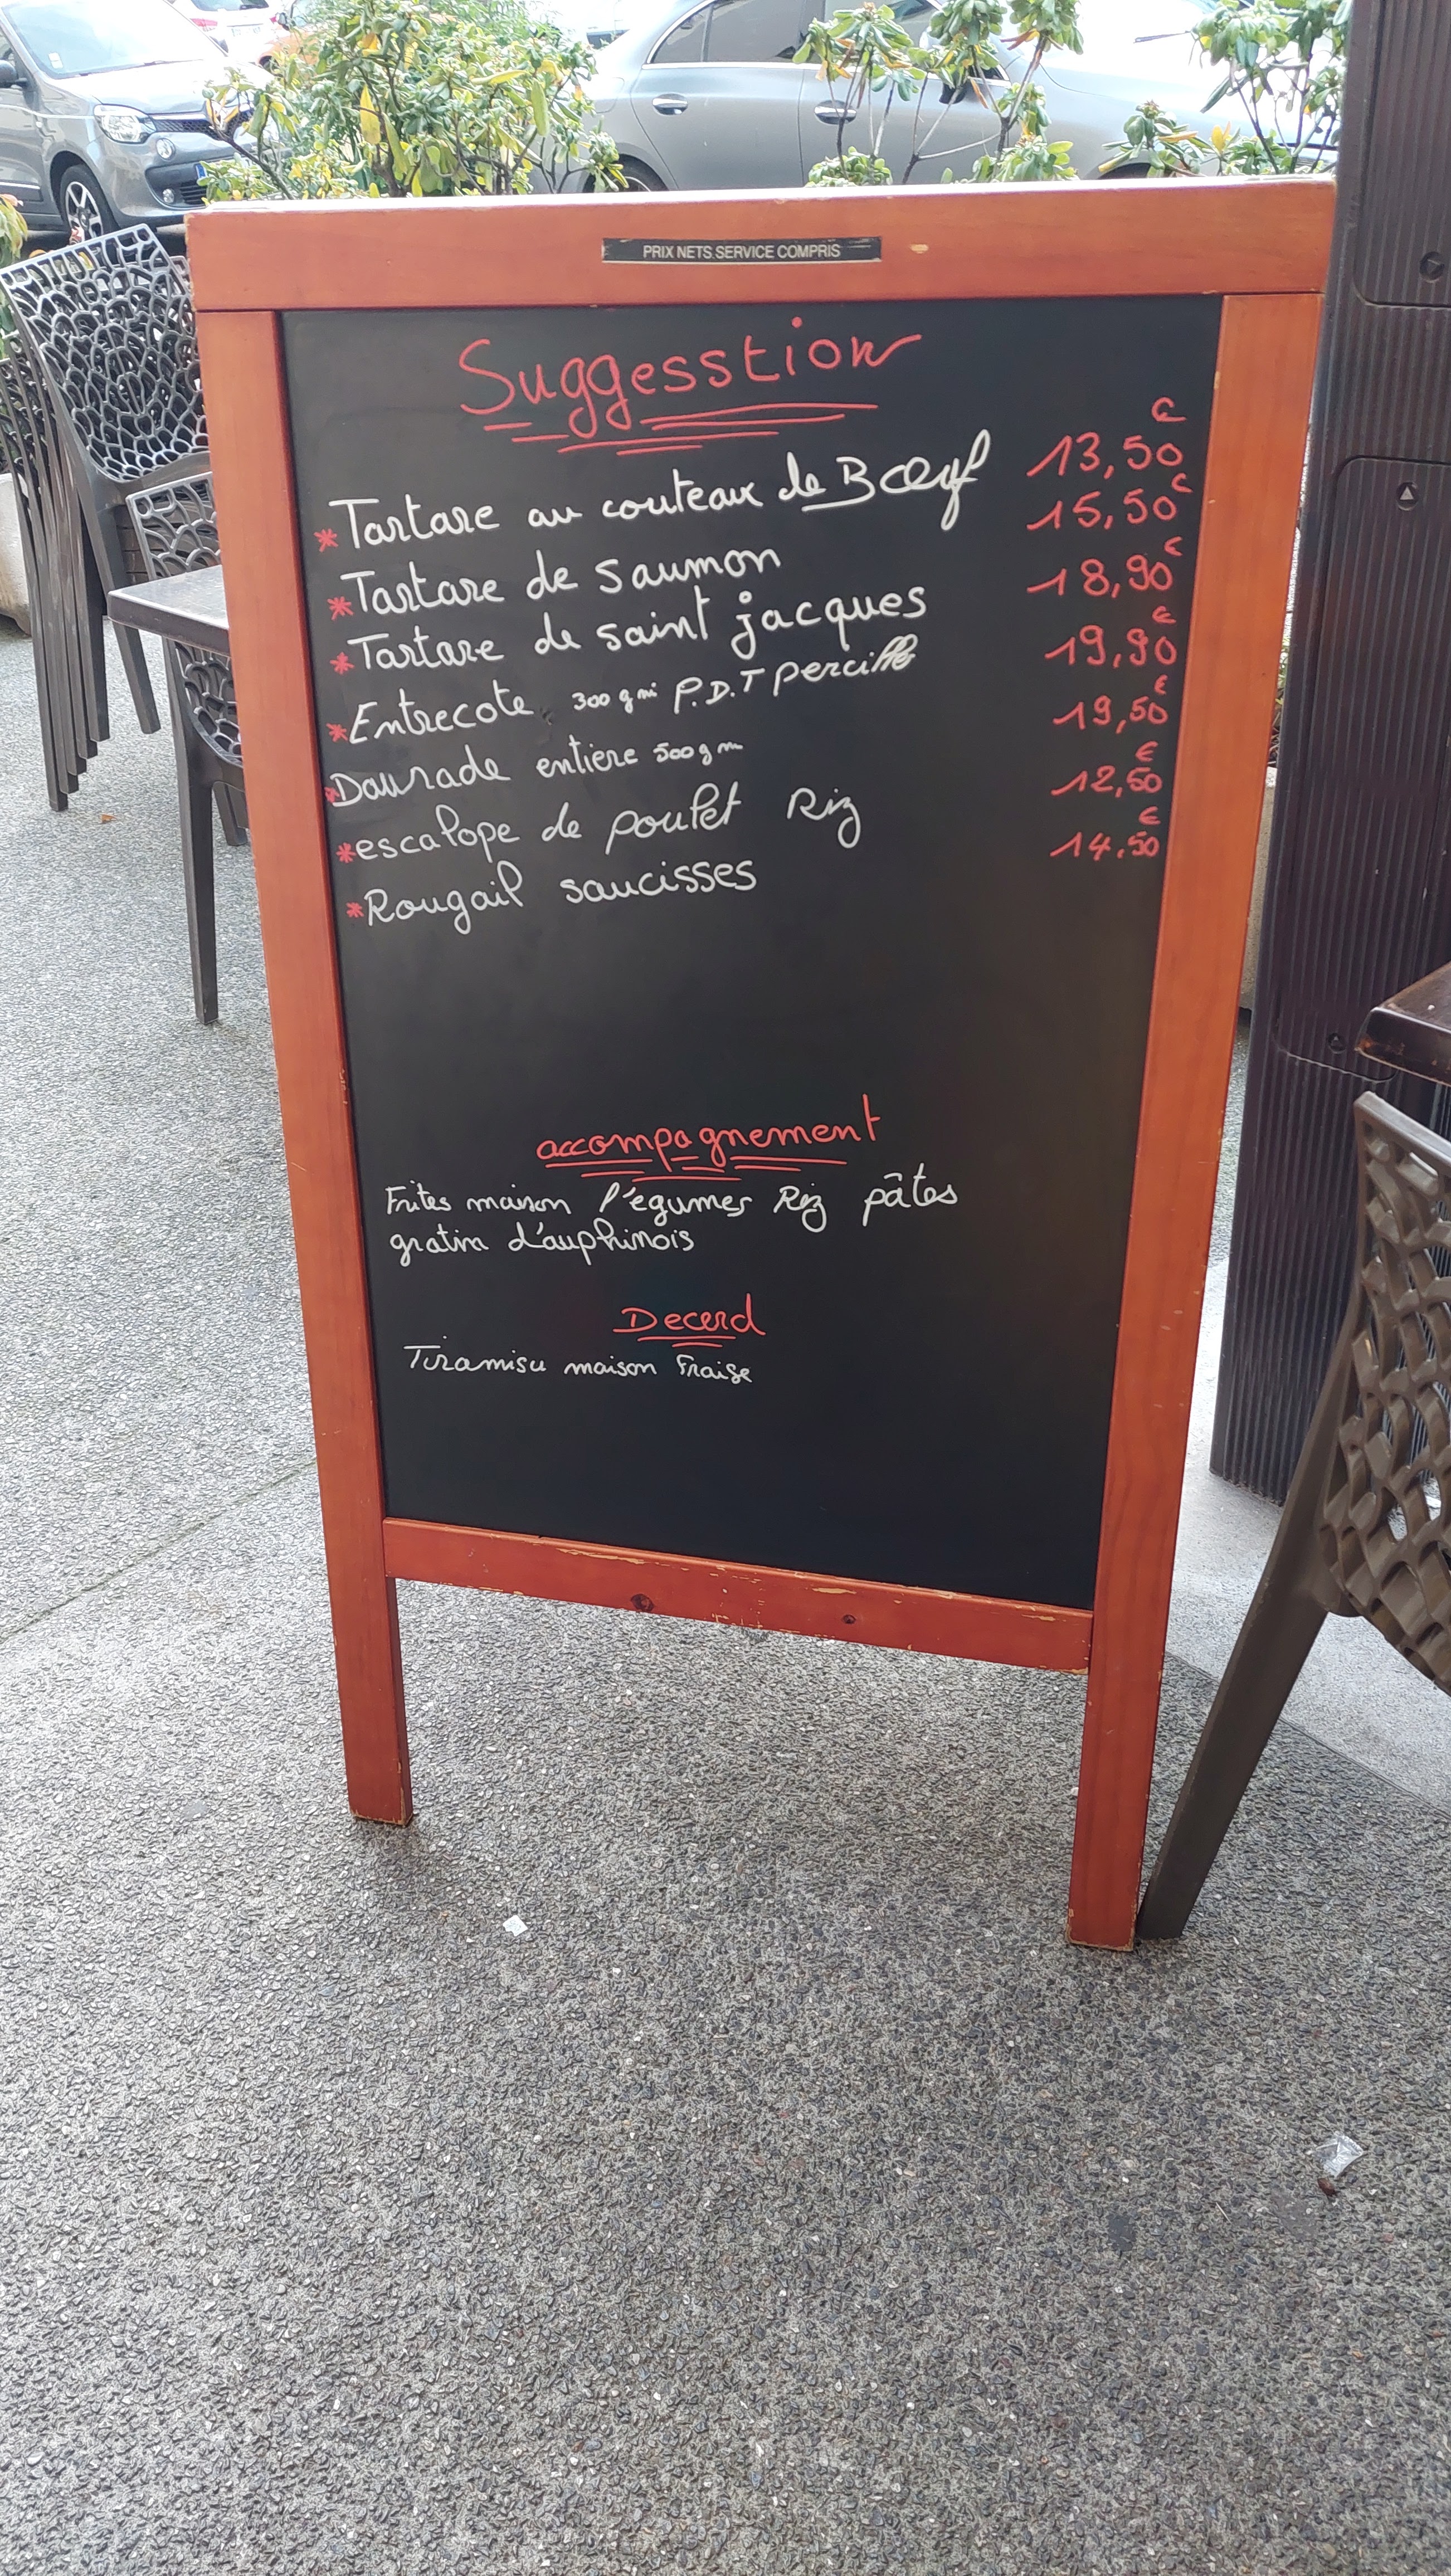 PRIX NETS SERVICE COMPRIS
Suggesstion
* Tartare au couteaux de Bœuf 13,50 €
* Tartare de saumon 15,50 €
* Tartare de saint jacques 18,90 €
* Entrecote 300 g P.D.T percillé 19,90 €
* Daurade entière 500 gm 19,50 €
* escalope de poulet Riz 12,50 €
* Rougail saucisses 14,50 €
accompagnement
Frites maison l'égumes Riz pâtes
gratin d'auphinois
Decerd
Tiramisu maison Fraise